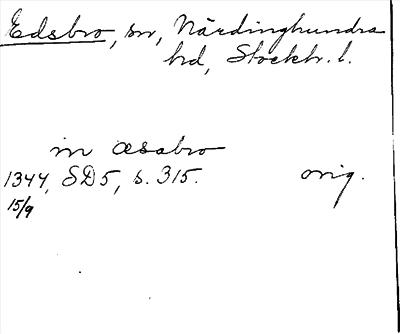 Edsbro, sn, Närdinghundra
hd, Stockh. l.
in æsabro
1344, SD5, s. 315. orig.
15/9